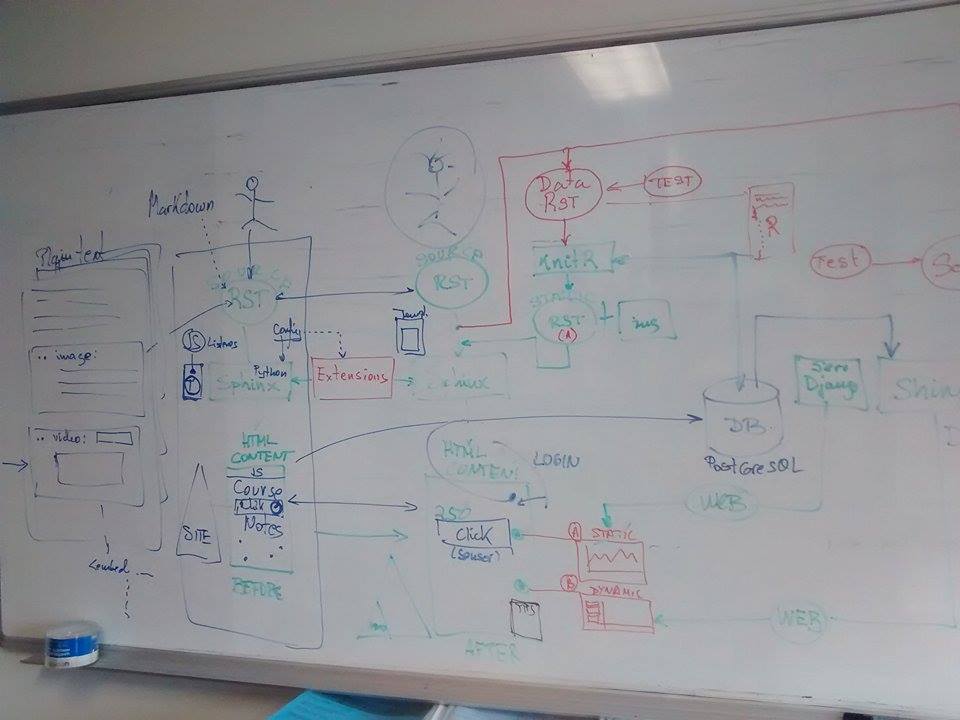 Markdown
Plain text
.. image:
.. video:
<embed
SOURCE
RST
JS
Listres
Config
Python
Sphinx
Extensions
HTML
CONTENT
JS
Course
Click
Notes
SITE
BEFORE
SOURCE
RST
Sphinx
HTML
CONTENT
LOGIN
250
Click
(sensor)
AFTER
Data
RST
TEST
R
KnitR
STATIC
RST
(A)
+
img
Test
DB
PostGreSQL
Django
WEB
A
STATIC
B
DYNAMIC
WEB